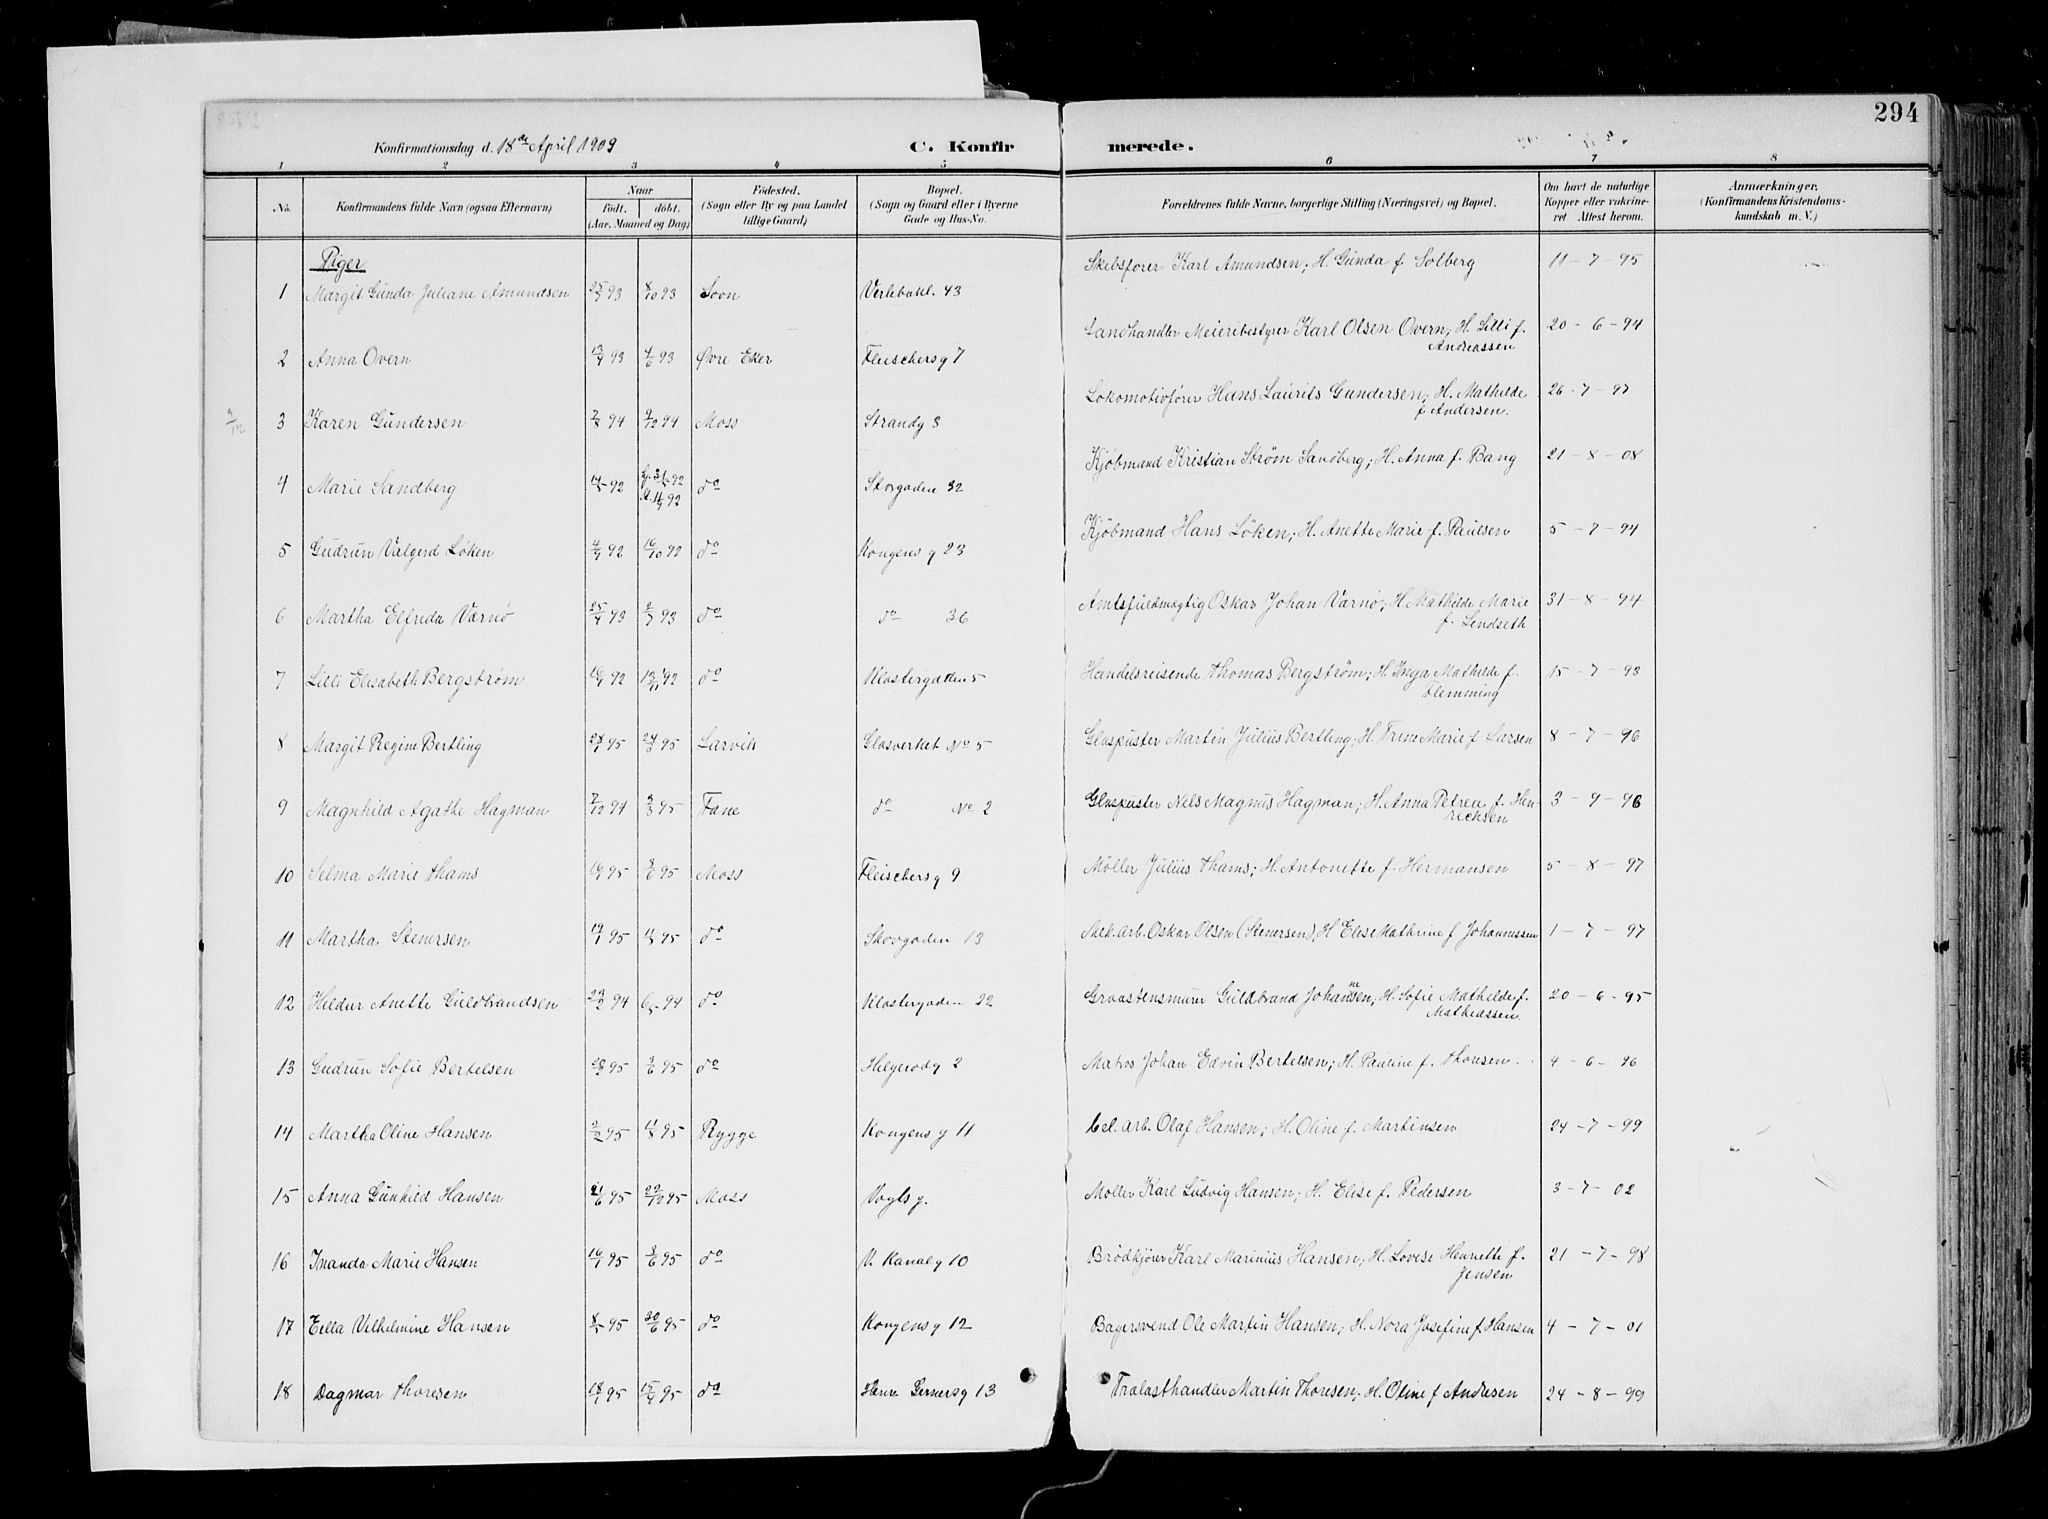 294
Konfirmationsdag d. 18de April 1909 C. Konfir merede.
1 2 3 4 5 6 7 8
No. Konfirmandens fulde Navn (ogsaa Efternavn) Naar Födt. döbt. (Aar, Maaned og Dag) Födested. (Sogn eller By og paa Landet tillige Gaard) Bopæl. (Sogn og Gaard eller i Byerne Gade og Hus-No. Forældrenes fulde Navne, borgerlige Stilling (Næringsvei) og Bopæl. Om havt de naturlige Kopper eller vakcineret Attest herom. Anmærkninger. (Konfirmandens Kristendomskundskab m. V.)
Piger
1 Margit Gunda Juliane Amundsen 93 8/10 93 Soon Verlebakl. 43 Skibsfører Karl Amundsen; H. Gunda f Solberg 11-7-95
2 Anna Overn 13/4 93 4/6 93 Øvre Eker Fleischersg 7 Landhandler Meieribestyrer Karl Olsen Overn; H. Lilli f. Andreassen 20-6-94
3 Karen Gundersen 94 9/12 94 Moss Strandg 3 Lokomotivfører Hans Laurits Gundersen; H. Mathilde f Andersen. 26-7-97
4 Marie Sandberg 92 92 do Storgaden 32 Kjøbmand Kristian Strøm Sandberg; H. Anna f. Bang 21-8-08
5 Gudrun Valgerd Løken 92 16/10 92 do Kongens g 23 Kjøbmand Hans Løken; H. Anette Marie f. Paulsen 5-7-94
6 Martha Elfreda Varnø 25/4 93 2/7 93 do do 36 Amtsfuldmægtig Oskar Johan Varnø; H. Mathilde Marie f. Lindseth 31-8-94
7 Lilli Elisabeth Bergstrøm 92 13/11 92 do Klostergaden 5 Handelsreisende Thomas Bergstrøm; H. Inga Mathilde f. Flemming 15-7-93
8 Margit Regine Bertling 95 24/3 95 Larvik Glasverket No 5 Glaspuster Martin Julius Bertling; H. Trine Marie f Larsen 8-7-96
9 Magnhild Agathe Hagman 7/12 94 3/3 95 Fane do No 2 Glaspuster Nils Magnus Hagman; H. Anna Petrea f. Henricksen 3-9-96
10 Selma Marie Thams 95 3/6 95 Moss Fleischersg 9 Møller Julius Thams; H. Antonette f. Hermansen 5-8-97
11 Martha Stenersen 19/1 95 95 do Skovgaden 13 Mek. Arb. Oskar Olsen (Stenersen), H Elise Mathrine f Johannessen 1-7-97
12 Hildur Anette Guldbrandsen 94 94 do Klostergaden 22 Graastensmurer Guldbrand Johannesen; H. Sofie Mathilde f. Mathiassen. 20-6-95
13 Gudrun Sofie Bertelsen 95 3/6 95 do Helgerodg 2 Matros Johan Edvin Bertelsen; H. Pauline f. Thoresen. 4-6-96
14 Martha Oline Hansen 2/2 95 11/8 95 Rygge Kongens g 11 Cel. arb. Olaf Hansen; H. Oline f. Martinsen 24-7-99
15 Anna Gunhild Hansen 21/6 95 22/12 95 Moss Vogts g. Møller Karl Ludvig Hansen; H. Elise f. Pedersen 3-7-02
16 Inanda Marie Hansen 95 3/6 95 do V. Kanalg 10 Brødkjører Karl Marinius Hansen; H. Lovise Henriette f. Jensen 21-7-98
17 Eella Vilhelmine Hansen 95 30/6 95 do Kongens g 12 Bagersvend Ole Martin Hansen; H. Nora Josefine f. Hansen 4-7-01
18 Dagmar Thoresen 95 95 do Henr. Gernersg 13 Trælasthandler Martin Thoresen; H. Oline f Andresen 24-8-99